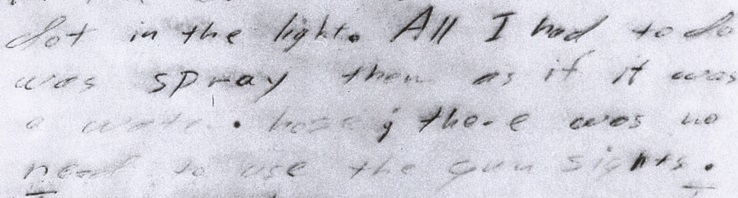 dot in the light. All I had to do
was spray them as if it was
a water hose; there was no
need to use the gun sights.